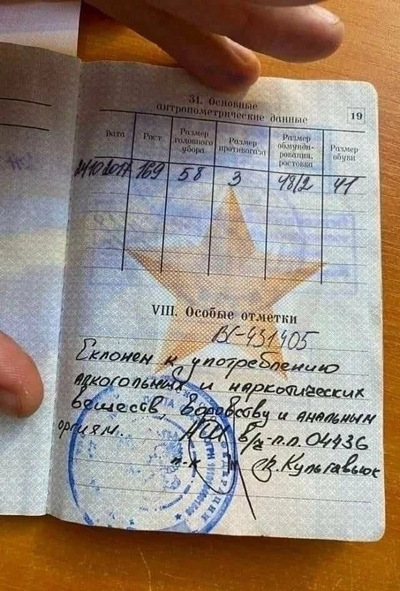 31. Основные
антропометрические данные
19
Дата
Рост
Размер головного убора
Размер противогаза
Размер обмунди-
рования, ростовка
Размер обуви
24.10.2017 169 58 3 48/2 41
VIII. Особые отметки
ВС-431405
Склонен к употреблению
алкогольных и наркотических
веществ, воровству и анальным
оргиям. НШ в/ч-п.п. 04436
п-к